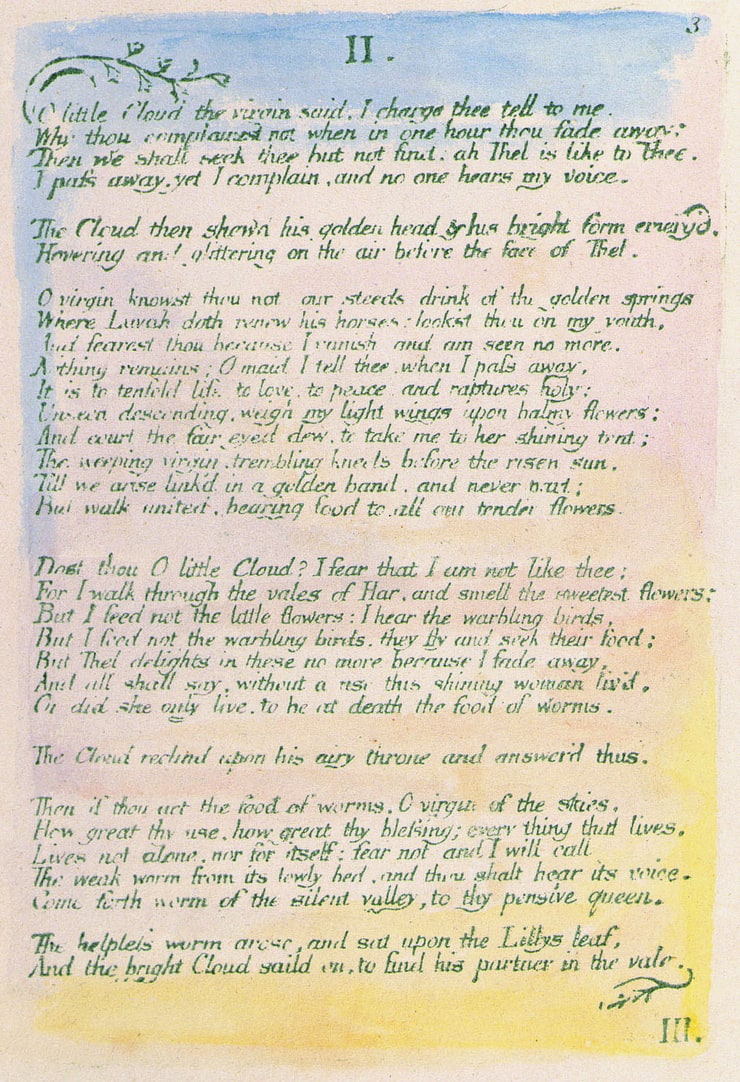 3
II.
O little Cloud the virgin said, I charge thee tell to me.
Why thou complainest not when in one hour thou fade away:
Then we shall seek thee but not find: ah Thel is like to Thee.
I pass away, yet I complain, and no one hears my voice.
The Cloud then shew'd his golden head & his bright form emerg'd.
Hovering and glittering on the air before the face of Thel.
O virgin knowst thou not our steeds drink of the golden springs
Where Luvah doth renew his horses: lookst thou on my youth,
And fearest thou because I vanish and am seen no more.
Nothing remains; O maid I tell thee, when I pass away,
It is to tenfold life, to love, to peace, and raptures holy:
Unseen descending, weigh my light wings upon balmy flowers:
And court the fair eyed dew, to take me to her shining tent;
The weeping virgin, trembling kneels before the risen sun.
Till we arise link'd in a golden band, and never part;
But walk united, bearing food to all our tender flowers
Dost thou O little Cloud? I fear that I am not like thee;
For I walk through the vales of Har, and smell the sweetest flowers;
But I feed not the little flowers: I hear the warbling birds,
But I feed not the warbling birds, they fly and seek their food;
But Thel delights in these no more because I fade away,
And all shall say, without a use this shining woman liv'd,
Or did she only live, to be at death the food of worms.
The Cloud reclind upon his airy throne and answerd thus.
Then if thou art the food of worms, O virgin of the skies,
How great thy use, how great thy blessing; every thing that lives,
Lives not alone, nor for itself: fear not and I will call
The weak worm from its lowly bed, and thou shalt hear its voice.
Come forth worm of the silent valley, to thy pensive queen.
The helpless worm arose, and sat upon the Lillys leaf,
And the bright Cloud saild on, to find his partner in the vale.
III.